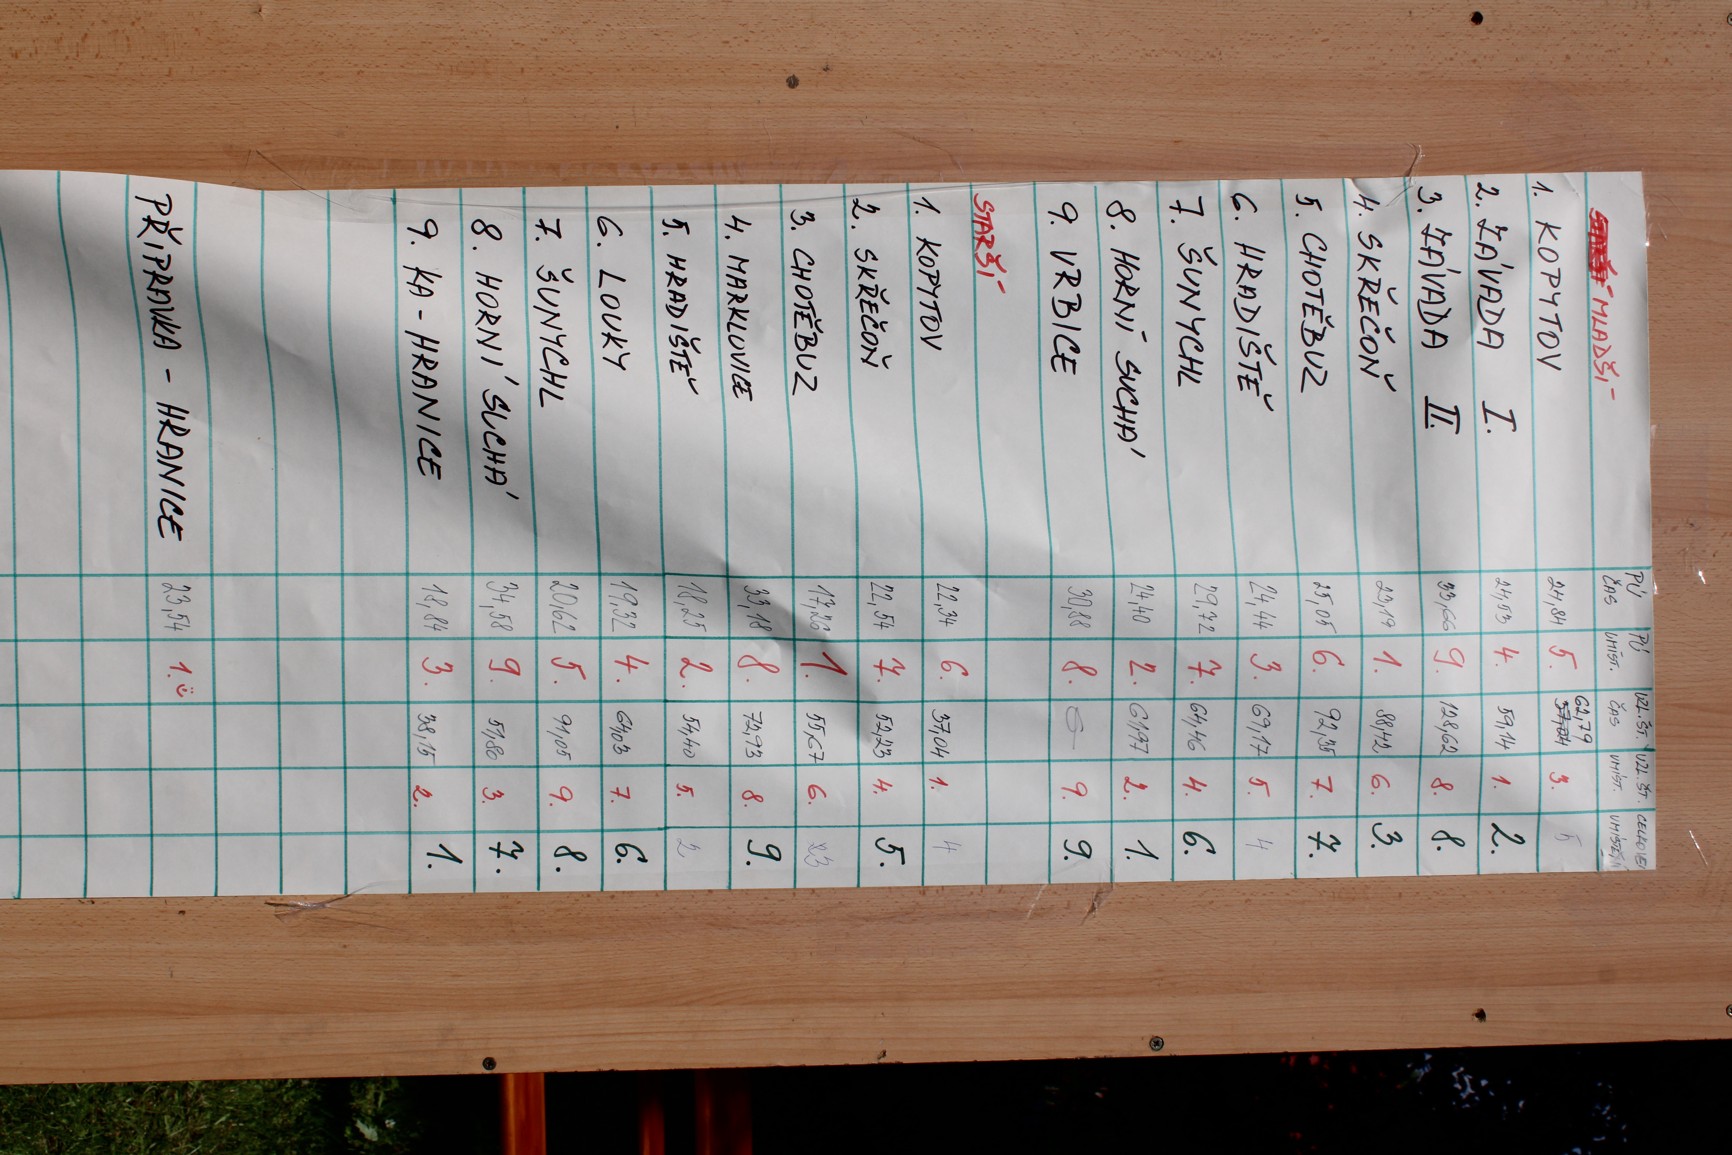 MLADŠÍ PÚ ČAS PÚ UMÍST. UZL.ŠT. ČAS UZL.ŠT. UMÍST. CELKOVÉ UMÍSTĚNÍ
1. KOPYTOV 24,84 5. 62,79 3. 5
2. ZÁVADA I. 24,53 4. 59,14 1. 2.
3. ZÁVADA II. 33,66 9. 128,62 8. 8.
4. SKŘEČOŇ 23,19 1. 88,42 6. 3.
5. CHOTĚBUZ 25,05 6. 92,35 7. 7.
6. HRADIŠTĚ 24,44 3. 69,17 5. 4
7. ŠUNYCHL 29,72 7. 64,46 4. 6.
8. HORNÍ SUCHÁ 24,40 2. 61,37 2. 1.
9. VRBICE 30,88 8. 9. 9.
STARŠÍ
1. KOPYTOV 22,34 6. 37,04 1. 4
2. SKŘEČOŇ 22,54 7. 52,23 4. 5.
3. CHOTĚBUZ 17,20 1. 55,67 6. 3
4. MARKLOVICE 33,18 8. 72,93 8. 9.
5. HRADIŠTĚ 18,25 2. 54,40 5. 2
6. LOUKY 19,32 4. 64,03 7. 6.
7. ŠUNYCHL 20,62 5. 91,05 9. 8.
8. HORNÍ SUCHÁ 34,58 9. 51,80 3. 7.
9. KA - HRANICE 18,84 3. 38,15 2. 1.
PŘÍPRAVKA - HRANICE 23,54 1.